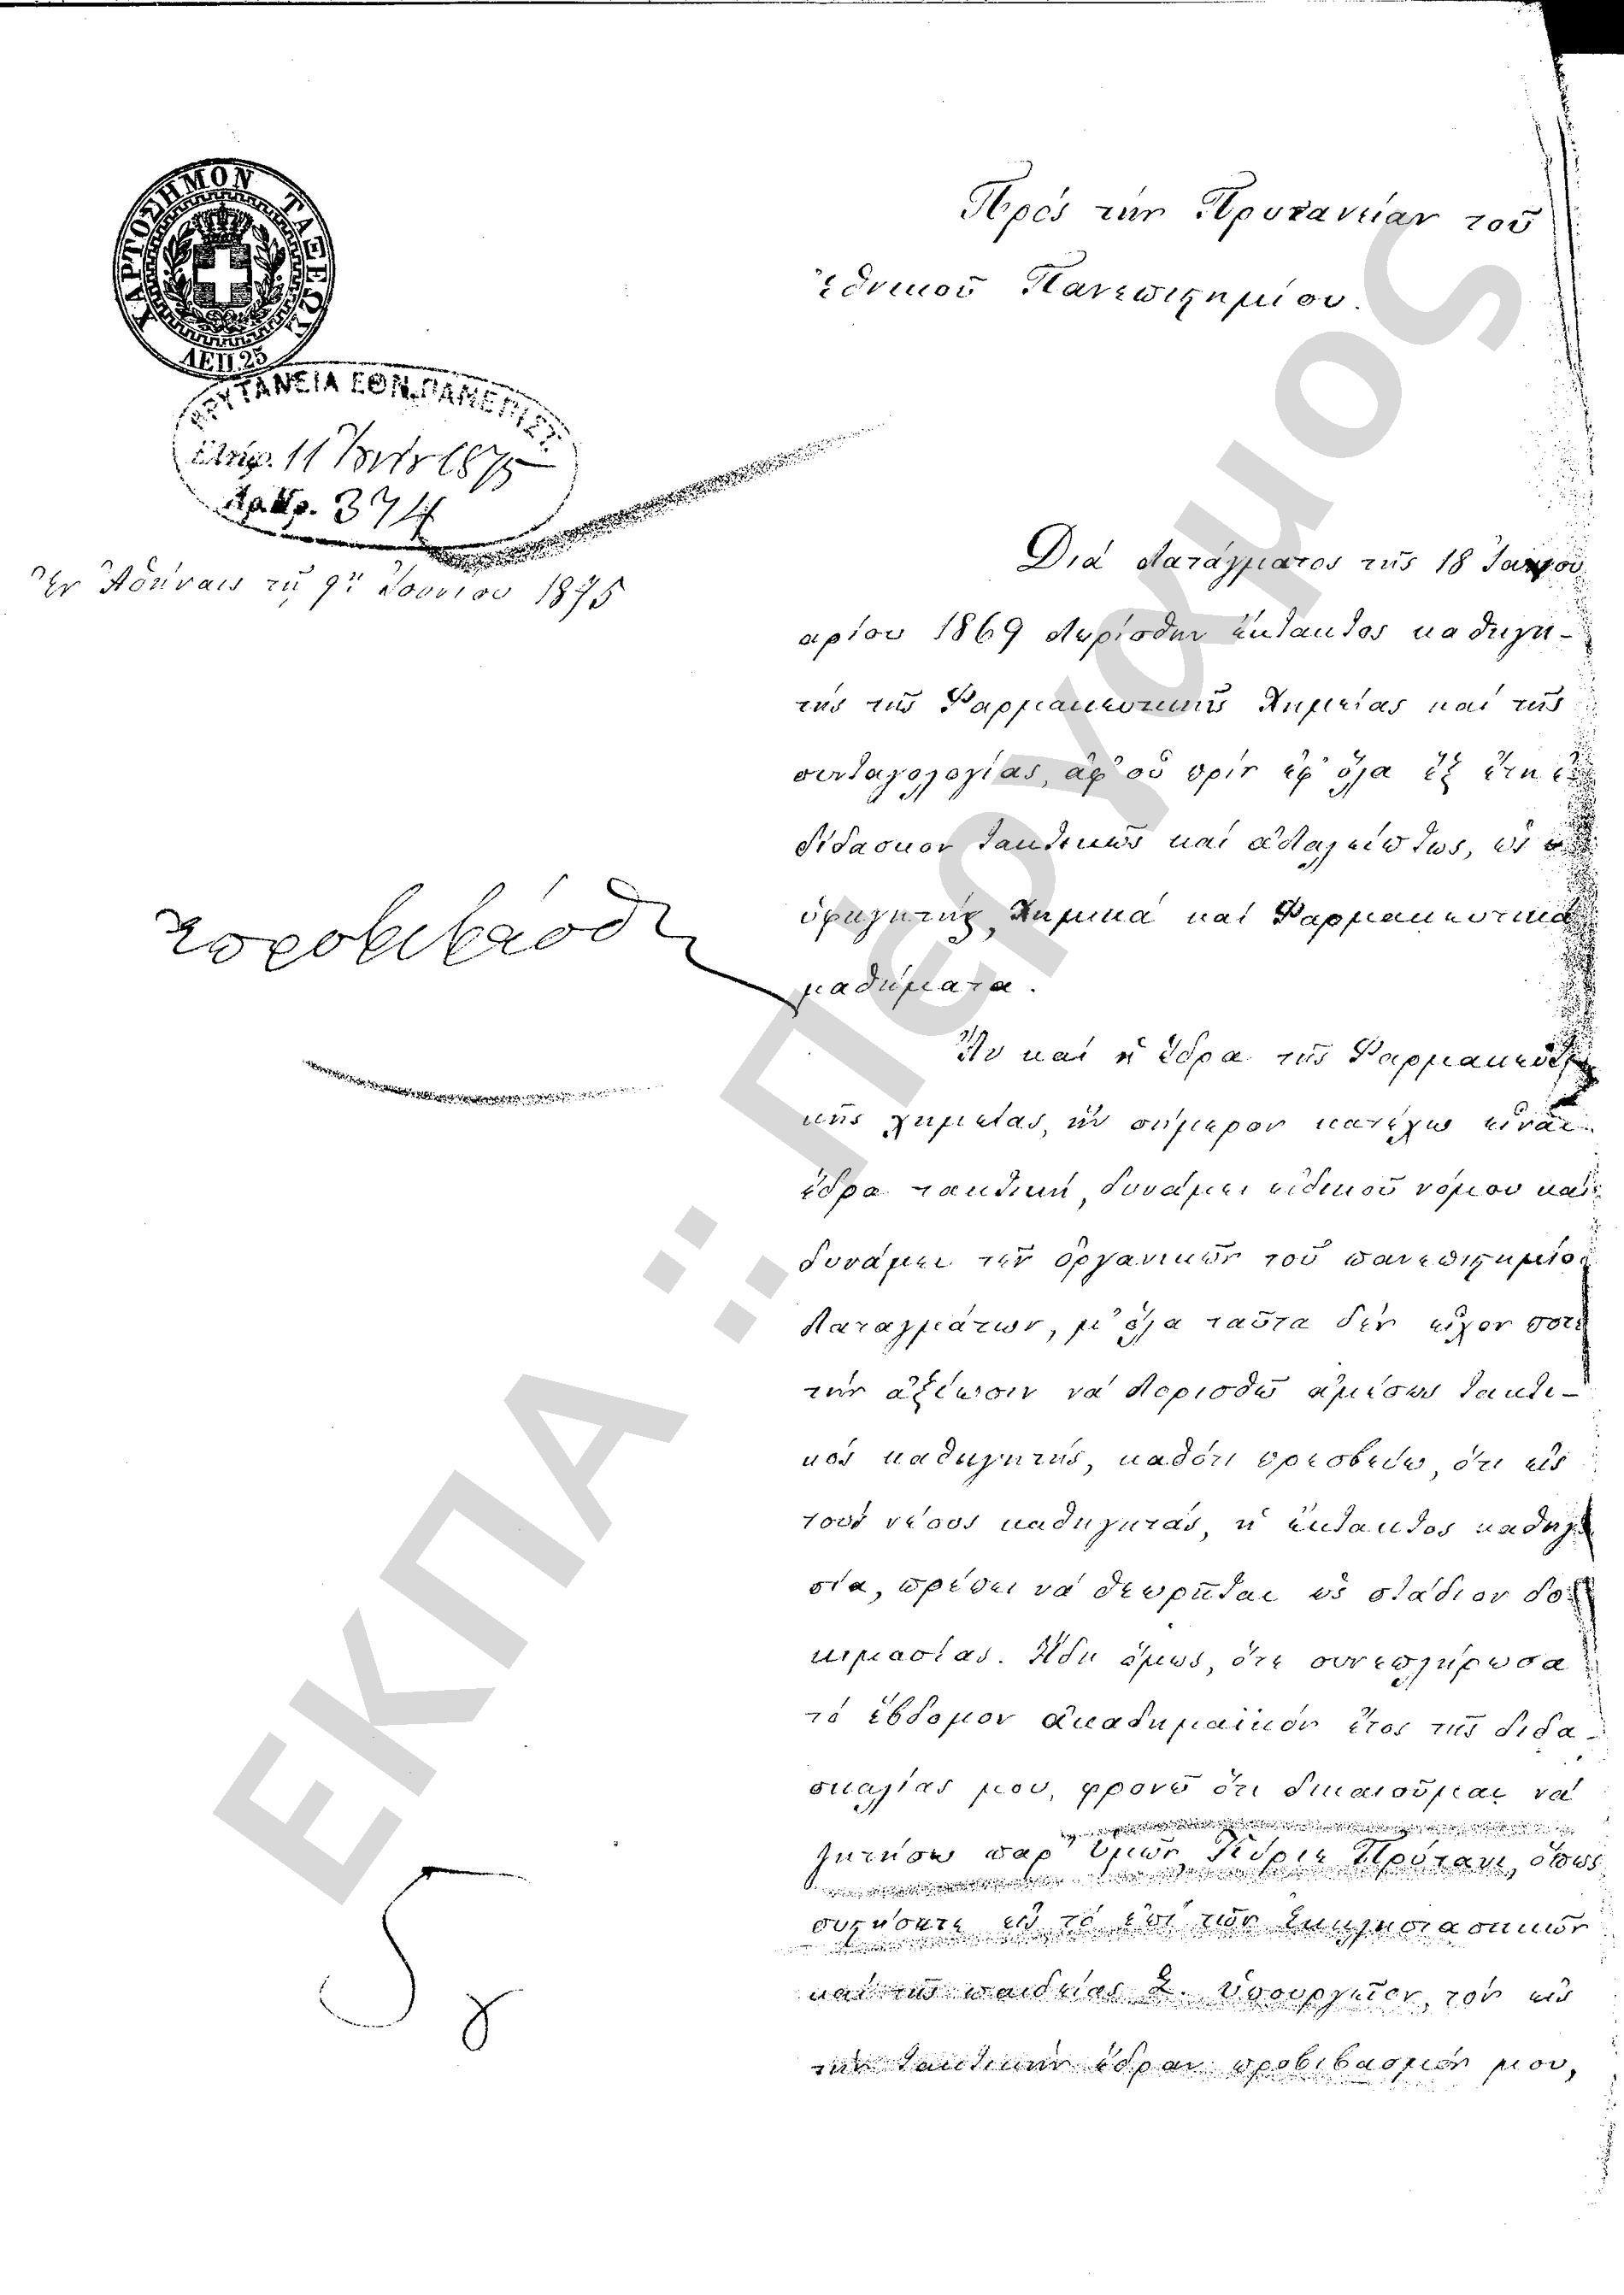 ΧΑΡΤΟΣΗΜΟΝ ΤΑΞΕΩΣ
ΛΕΠ. 25
ΠΡΥΤΑΝΕΙΑ ΕΘΝ. ΠΑΝΕΠΙΣΤ.
Ἐλήφ. 11 Ἰουν 1875
Ἀρ. Πρ. 374
Ἐν Ἀθήναις τῇ 9ῃ Ἰουνίου 1875
Πρός τήν Πρυτανείαν τοῦ
Ἐθνικοῦ Πανεπιστημίου.
Διά Διατάγματος τῆς 18 Ἰανου
αρίου 1869 διωρίσθην ἔκτακτος καθηγη-
τής τῆς Φαρμακευτικῆς Χημείας καί τῆς
συνταγολογίας, ἀφ' οὗ πρίν ἐφ' ὅλα ἓξ ἔτη ἐ
δίδασκον τακτικῶς καί ἀδιαλείπτως, ὡς
ὑφηγητής, Χημικά καί Φαρμακευτικά
μαθήματα.
Ἄν καί ἡ ἕδρα τῆς Φαρμακευτι
κῆς χημείας, ἥν σήμερον κατέχω εἶναι
ἕδρα τακτική, δυνάμει εἰδικοῦ νόμου καί
δυνάμει τῶν ὀργανικῶν τοῦ πανεπιστημίου
διαταγμάτων, μ' ὅλα ταῦτα δέν εἶχον ποτέ
τήν ἀξίωσιν νά διορισθῶ ἀμέσως τακτι-
κός καθηγητής, καθότι πρεσβεύω, ὅτι εἰς
τούς νέους καθηγητάς, ἡ ἔκτακτος καθηγε
σία, πρέπει νά θεωρῆται ὡς στάδιον δο-
κιμασίας. Ἤδη ὅμως, ὅτε συνεπλήρωσα
τό ἕβδομον ἀκαδημαϊκόν ἔτος τῆς διδα-
σκαλίας μου, φρονῶ ὅτι δικαιοῦμαι νά
ζητήσω παρ' Ὑμῶν Κύριε Πρύτανι, ὅπως
συστήσητε εἰς τό ἐπί τῶν Ἐκκλησιαστικῶν
καί τῆς παιδείας Σ. Ὑπουργεῖον, τόν εἰς
τήν τακτικήν ἕδραν προβιβασμόν μου,
ΕΚΠΑ :: Πέργαμος